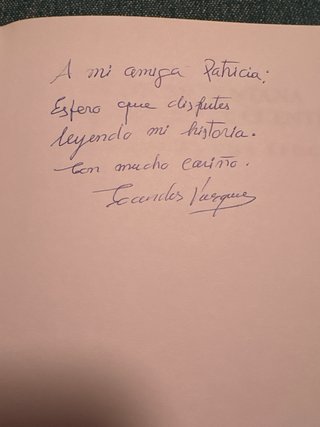 A mi amiga Patricia:
Espero que disfrutes
leyendo mi historia.
Con mucho cariño.